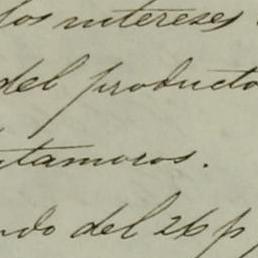 los intereses
del producto
utamoros.
ndo del 26 p